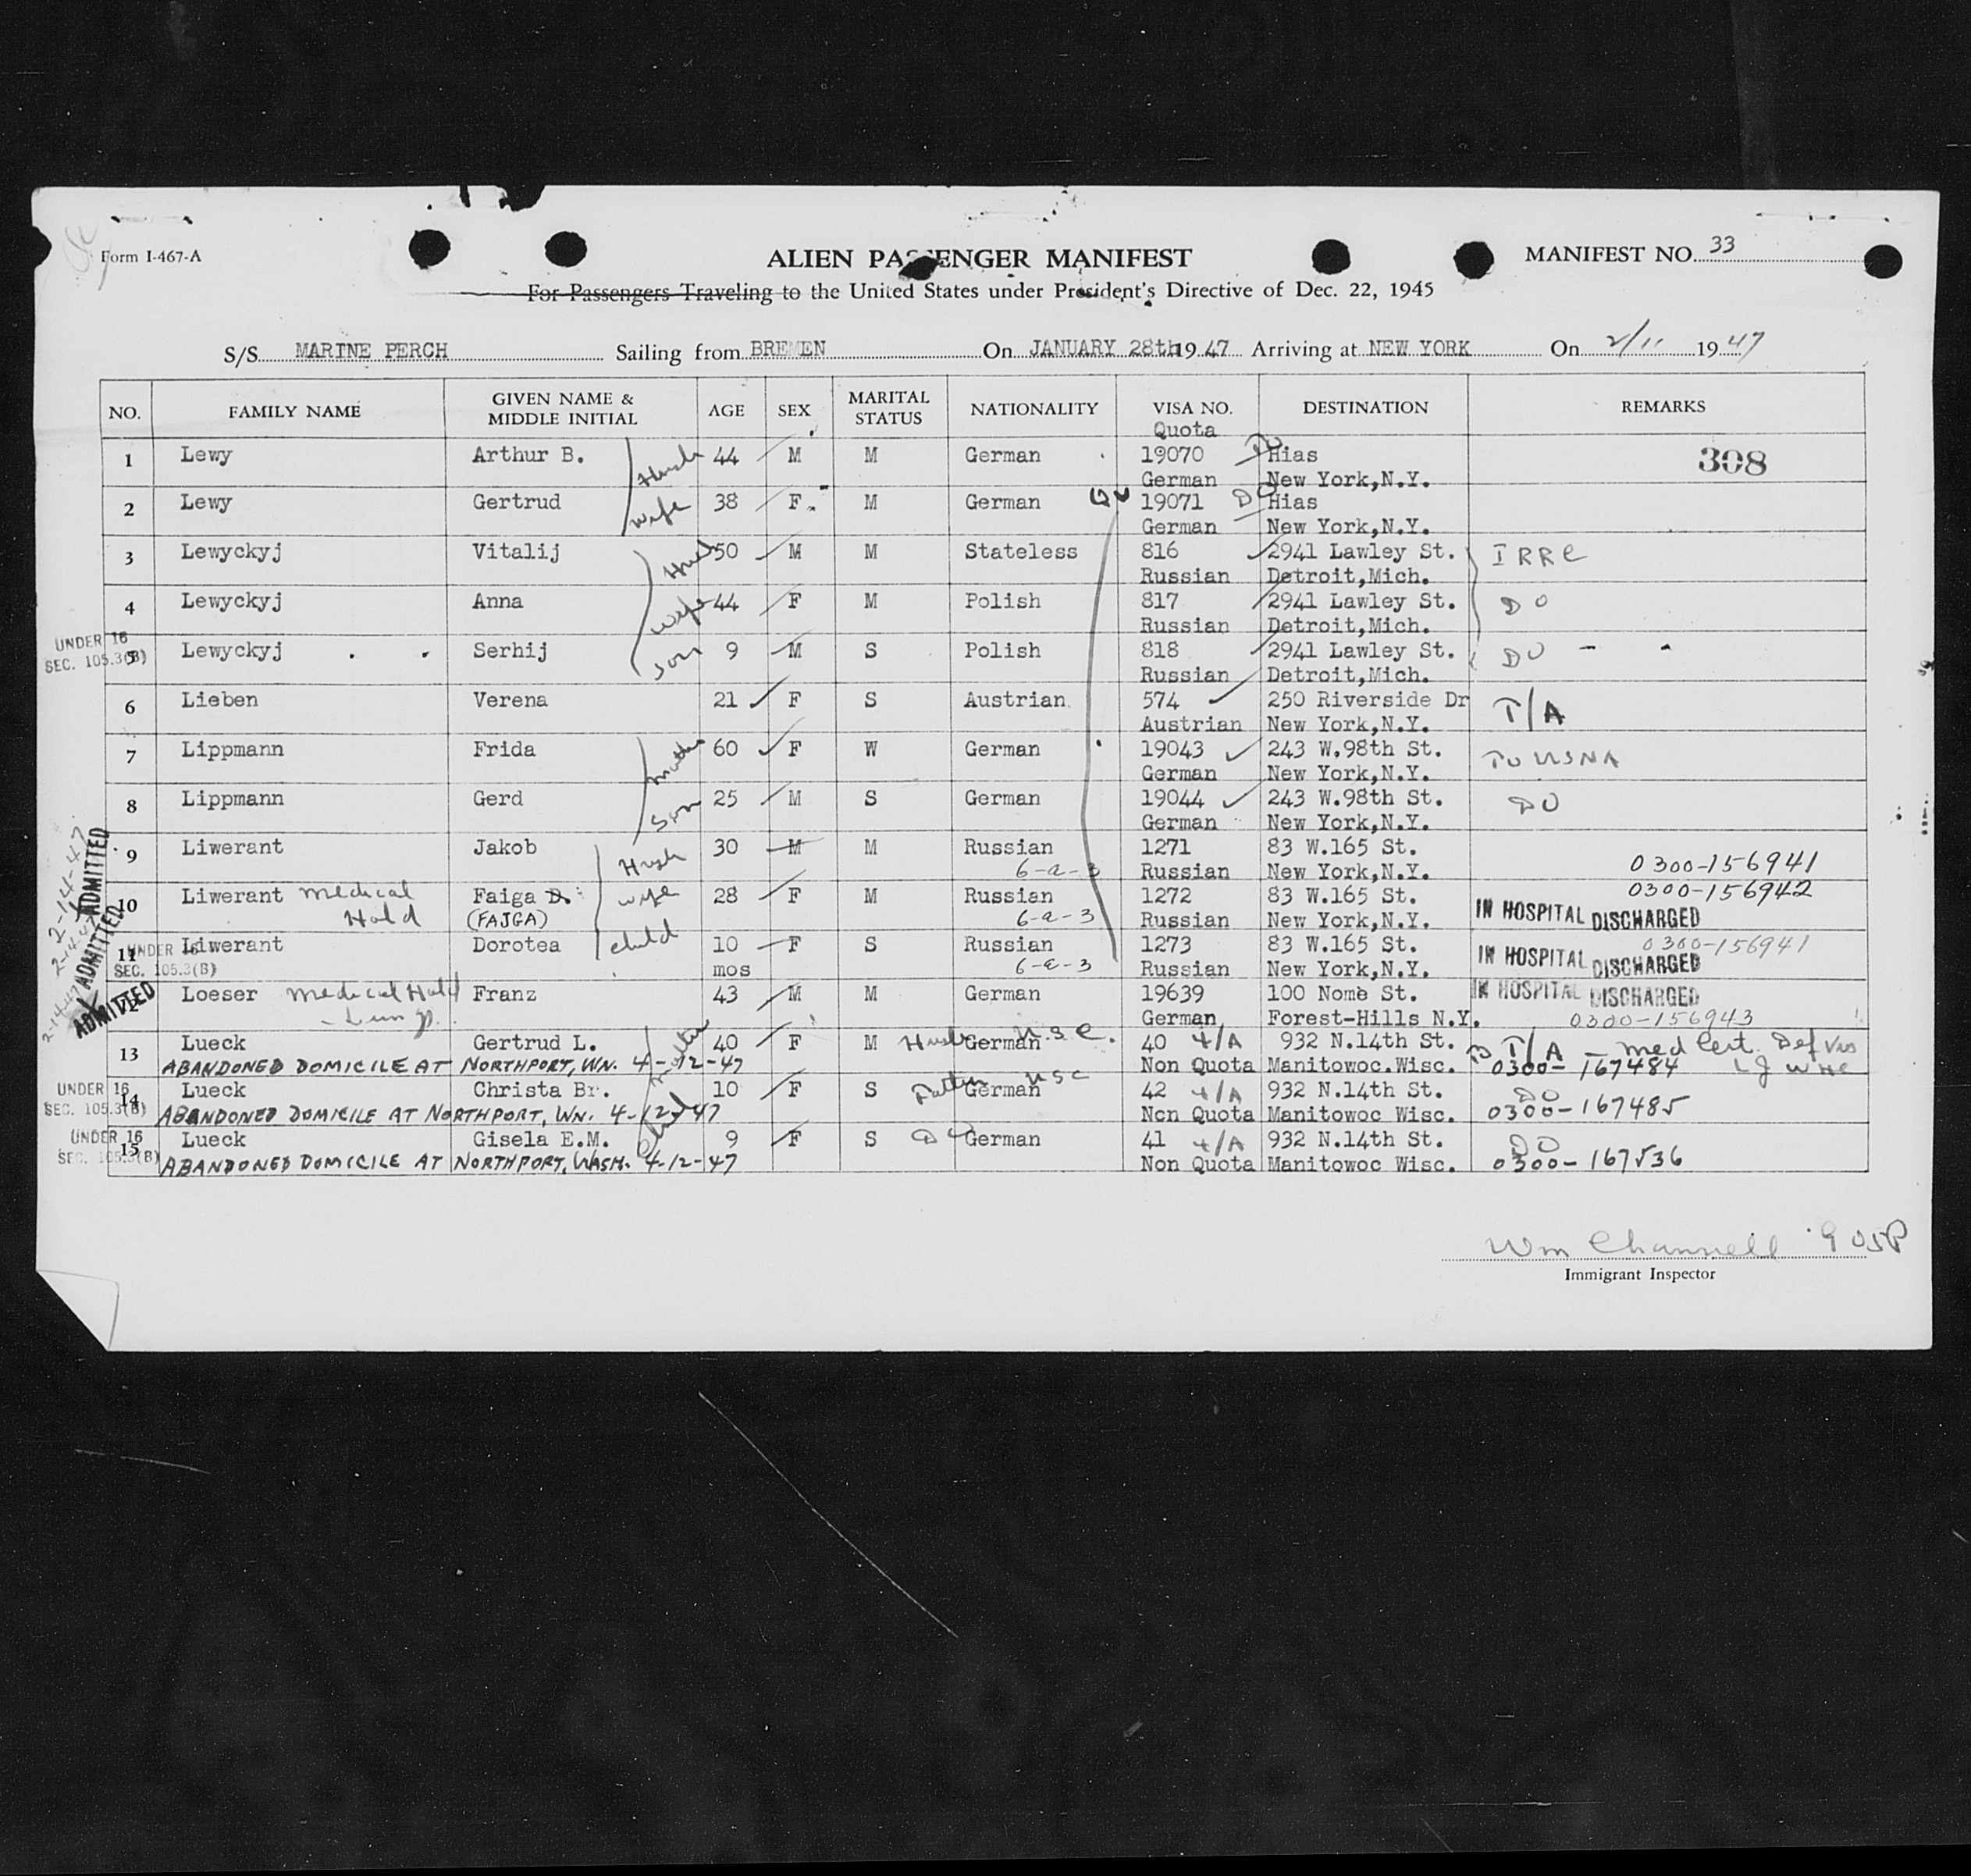 Form I-467-A
ALIEN PASSENGER MANIFEST
MANIFEST NO. 33
For Passengers Traveling to the United States under President's Directive of Dec. 22, 1945
S/S MARINE PERCH Sailing from BREMEN On JANUARY 28th 19 47 Arriving at NEW YORK On 2/11 19 47
NO. FAMILY NAME GIVEN NAME & MIDDLE INITIAL AGE SEX MARITAL STATUS NATIONALITY VISA NO. Quota DESTINATION REMARKS
1 Lewy Arthur B. Husb 44 M M German 19070 Hias 308
German New York,N.Y.
2 Lewy Gertrud wife 38 F M German 19071 DO Hias
German New York,N.Y.
3 Lewyckyj Vitalij Husb 50 M M Stateless 816 2941 Lawley St. IRRC
Russian Detroit,Mich.
4 Lewyckyj Anna wife 44 F M Polish 817 2941 Lawley St. DO
Russian Detroit,Mich.
UNDER 16
SEC. 105.3(B)
5 Lewyckyj Serhij son 9 M S Polish 818 2941 Lawley St. DO
Russian Detroit,Mich.
6 Lieben Verena 21 F S Austrian 574 250 Riverside Dr T/A
Austrian New York,N.Y.
7 Lippmann Frida mother 60 F W German 19043 243 W.98th St. TO USNA
German New York,N.Y.
8 Lippmann Gerd son 25 M S German 19044 243 W.98th St. DO
German New York,N.Y.
9 Liwerant Jakob Husb 30 M M Russian 1271 83 W.165 St.
6-a-3 Russian New York,N.Y. 0300-156941
2-14-47 ADMITTED
10 Liwerant medical Faiga D. wife 28 F M Russian 1272 83 W.165 St. 0300-156942
Hold (FAJGA) 6-a-3 Russian New York,N.Y. IN HOSPITAL DISCHARGED
2-14-47 ADMITTED
11 Liwerant Dorotea child 10 F S Russian 1273 83 W.165 St. 0300-156941
UNDER 16
SEC. 105.3(B) mos 6-a-3 Russian New York,N.Y. IN HOSPITAL DISCHARGED
2-14-47 ADMITTED
12 Loeser medical Hold Franz 43 M M German 19639 100 Nome St. IN HOSPITAL DISCHARGED
German Forest-Hills N.Y. 0300-156943
13 Lueck Gertrud L. mother 40 F M Husb German U.S.C. 40 4/A 932 N.14th St. T/A - med Cert. Def Vis
ABANDONED DOMICILE AT NORTHPORT, WN. 4-12-47 Non Quota Manitowoc.Wisc. 0300-167484
UNDER 16
SEC. 105.3(B)
14 Lueck Christa Br. 10 F S Father German USC 42 4/A 932 N.14th St. DO
ABANDONED DOMICILE AT NORTHPORT, WN. 4-12-47 Non Quota Manitowoc Wisc. 0300-167485
UNDER 16
SEC. 105.3(B)
15 Lueck Gisela E.M. child 9 F S DO German 41 4/A 932 N.14th St. DO
ABANDONED DOMICILE AT NORTHPORT, WASH. 4-12-47 Non Quota Manitowoc Wisc. 0300-167536
Wm Channell 905P
Immigrant Inspector